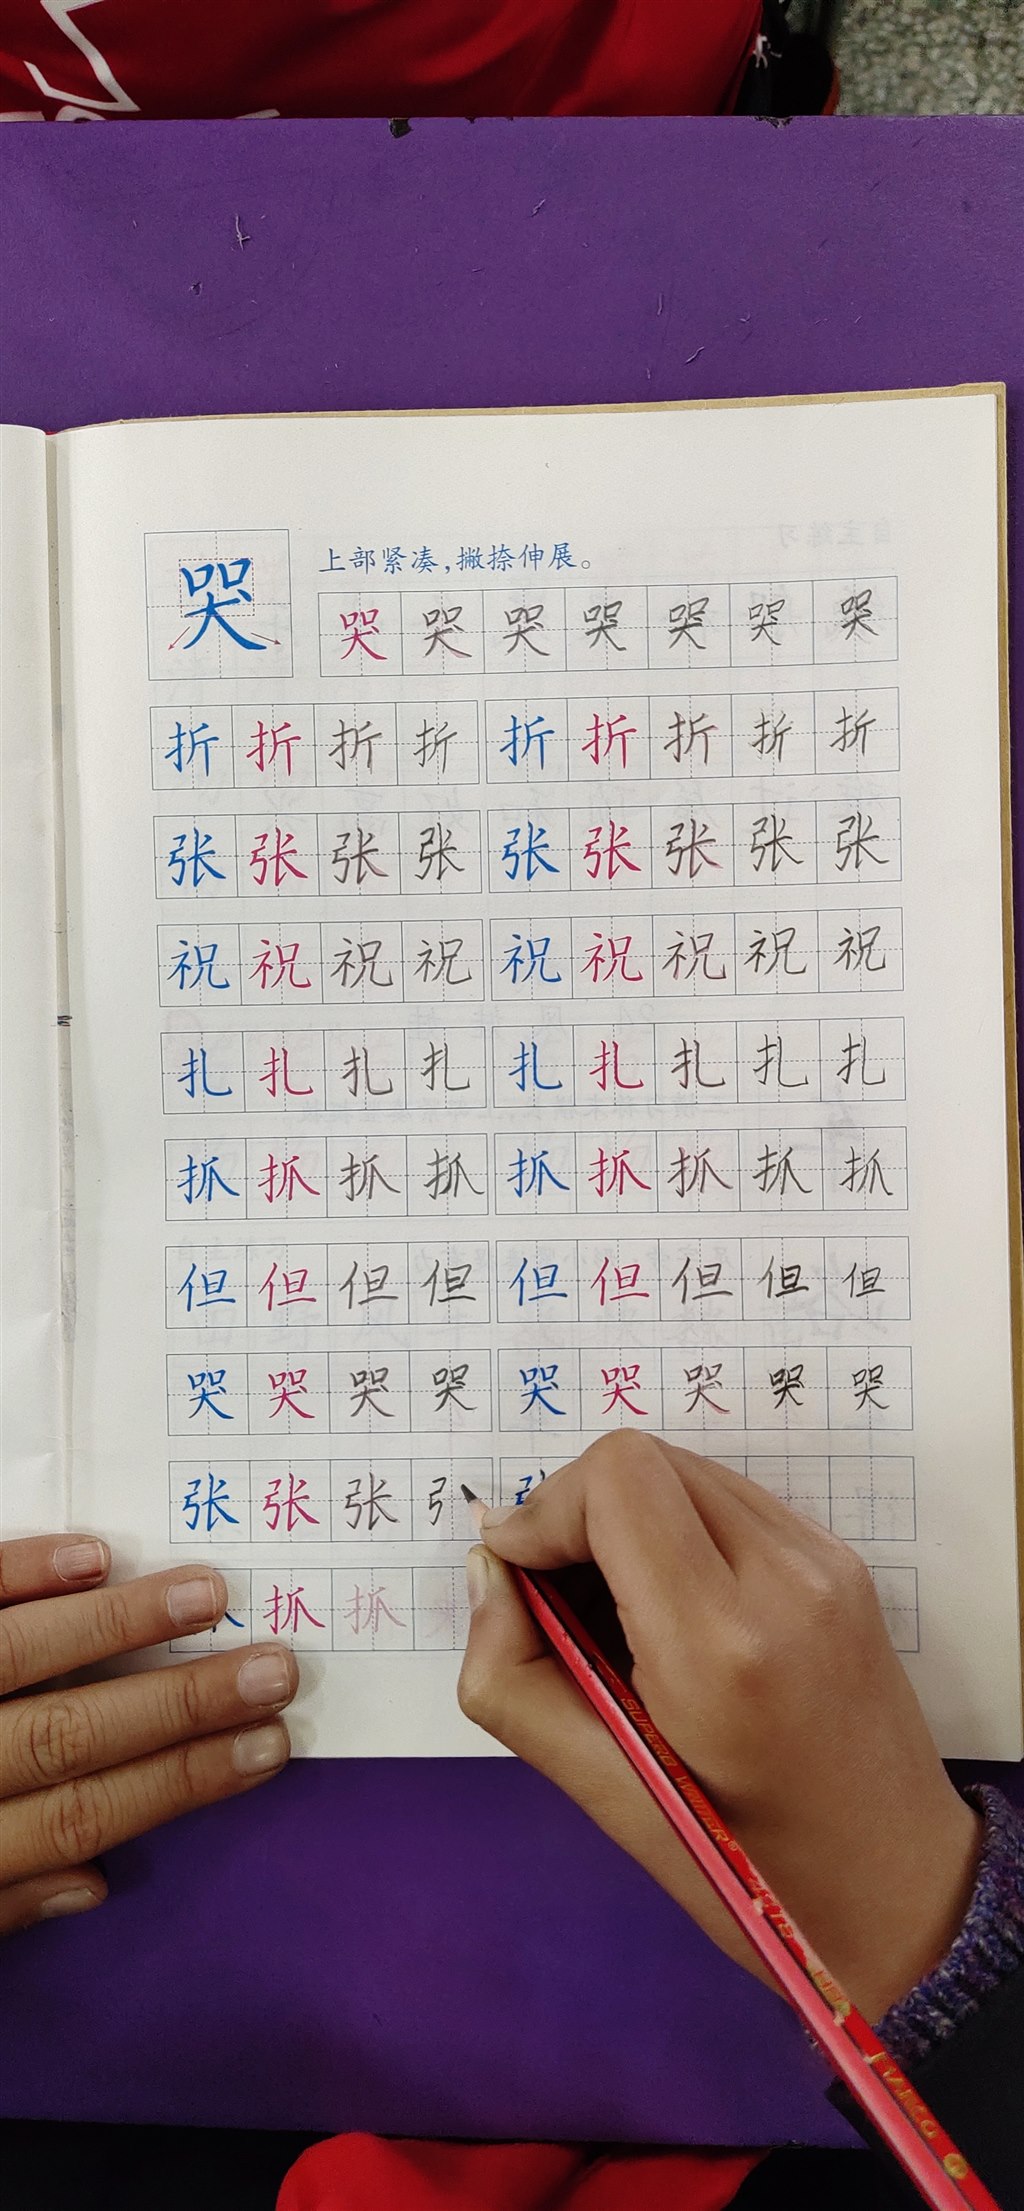 哭
上部紧凑,撇捺伸展。
哭 哭 哭 哭 哭 哭 哭
折 折 折 折 折 折 折 折 折
张 张 张 张 张 张 张 张 张
祝 祝 祝 祝 祝 祝 祝 祝 祝
扎 扎 扎 扎 扎 扎 扎 扎 扎
抓 抓 抓 抓 抓 抓 抓 抓 抓
但 但 但 但 但 但 但 但 但
哭 哭 哭 哭 哭 哭 哭 哭 哭
张 张 张
抓 抓
SUPERB WRITER®